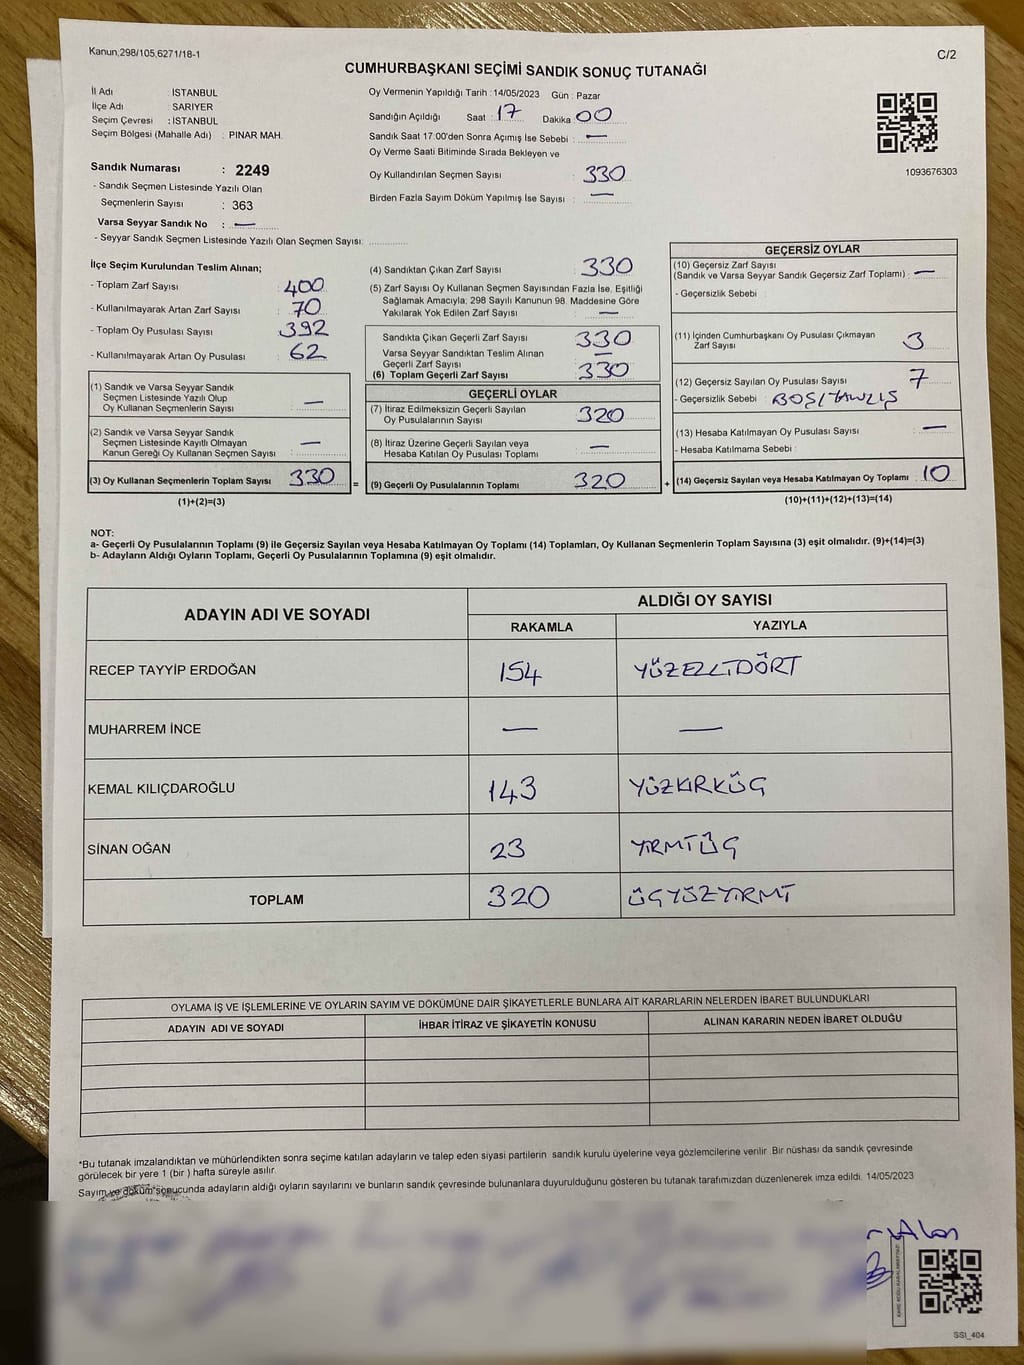 Kanun,298/105,6271/18-1
C/2
CUMHURBAŞKANI SEÇİMİ SANDIK SONUÇ TUTANAĞI
İl Adı : İSTANBUL
İlçe Adı : SARIYER
Seçim Çevresi : İSTANBUL
Seçim Bölgesi (Mahalle Adı) : PINAR MAH.
Oy Vermenin Yapıldığı Tarih :14/05/2023 Gün : Pazar
Sandığın Açıldığı Saat : 17 Dakika : 00
Sandık Saat 17:00'den Sonra Açımış İse Sebebi : —
Oy Verme Saati Bitiminde Sırada Bekleyen ve
Oy Kullandırılan Seçmen Sayısı : 330
Birden Fazla Sayım Döküm Yapılmış İse Sayısı : —
1093676303
Sandık Numarası : 2249
- Sandık Seçmen Listesinde Yazılı Olan
Seçmenlerin Sayısı : 363
Varsa Seyyar Sandık No : —
- Seyyar Sandık Seçmen Listesinde Yazılı Olan Seçmen Sayısı:
İlçe Seçim Kurulundan Teslim Alınan;
- Toplam Zarf Sayısı : 400
- Kullanılmayarak Artan Zarf Sayısı : 70
- Toplam Oy Pusulası Sayısı : 392
- Kullanılmayarak Artan Oy Pusulası : 62
(1) Sandık ve Varsa Seyyar Sandık
Seçmen Listesinde Yazılı Olup
Oy Kullanan Seçmenlerin Sayısı : —
(2) Sandık ve Varsa Seyyar Sandık
Seçmen Listesinde Kayıtlı Olmayan
Kanun Gereği Oy Kullanan Seçmen Sayısı : —
(3) Oy Kullanan Seçmenlerin Toplam Sayısı : 330 =
(1)+(2)=(3)
(4) Sandıktan Çıkan Zarf Sayısı : 330
(5) Zarf Sayısı Oy Kullanan Seçmen Sayısından Fazla İse, Eşitliği
Sağlamak Amacıyla; 298 Sayılı Kanunun 98. Maddesine Göre
Yakılarak Yok Edilen Zarf Sayısı : —
Sandıkta Çıkan Geçerli Zarf Sayısı : 330
Varsa Seyyar Sandıktan Teslim Alınan
Geçerli Zarf Sayısı : —
(6) Toplam Geçerli Zarf Sayısı : 330
GEÇERLİ OYLAR
(7) İtiraz Edilmeksizin Geçerli Sayılan
Oy Pusulalarının Sayısı : 320
(8) İtiraz Üzerine Geçerli Sayılan veya
Hesaba Katılan Oy Pusulası Toplamı : —
(9) Geçerli Oy Pusulalarının Toplamı : 320 +
GEÇERSİZ OYLAR
(10) Geçersiz Zarf Sayısı
(Sandık ve Varsa Seyyar Sandık Geçersiz Zarf Toplamı) : —
- Geçersizlik Sebebi :
(11) İçinden Cumhurbaşkanı Oy Pusulası Çıkmayan
Zarf Sayısı : 3
(12) Geçersiz Sayılan Oy Pusulası Sayısı : 7
- Geçersizlik Sebebi : BOŞ/YANLIŞ
(13) Hesaba Katılmayan Oy Pusulası Sayısı : —
- Hesaba Katılmama Sebebi :
(14) Geçersiz Sayılan veya Hesaba Katılmayan Oy Toplamı : 10
(10)+(11)+(12)+(13)=(14)
NOT:
a- Geçerli Oy Pusulalarının Toplamı (9) ile Geçersiz Sayılan veya Hesaba Katılmayan Oy Toplamı (14) Toplamları, Oy Kullanan Seçmenlerin Toplam Sayısına (3) eşit olmalıdır. (9)+(14)=(3)
b- Adayların Aldığı Oyların Toplamı, Geçerli Oy Pusulalarının Toplamına (9) eşit olmalıdır.
ADAYIN ADI VE SOYADI ALDIĞI OY SAYISI
RAKAMLA YAZIYLA
RECEP TAYYİP ERDOĞAN 154 YÜZELLİDÖRT
MUHARREM İNCE — —
KEMAL KILIÇDAROĞLU 143 YÜZKIRKÜÇ
SİNAN OĞAN 23 YİRMİÜÇ
TOPLAM 320 ÜÇYÜZYİRMİ
OYLAMA İŞ VE İŞLEMLERİNE VE OYLARIN SAYIM VE DÖKÜMÜNE DAİR ŞİKAYETLERLE BUNLARA AİT KARARLARIN NELERDEN İBARET BULUNDUKLARI
ADAYIN ADI VE SOYADI İHBAR İTİRAZ VE ŞİKAYETİN KONUSU ALINAN KARARIN NEDEN İBARET OLDUĞU
*Bu tutanak imzalandıktan ve mühürlendikten sonra seçime katılan adayların ve talep eden siyasi partilerin sandık kurulu üyelerine veya gözlemcilerine verilir. Bir nüshası da sandık çevresinde
görülecek bir yere 1 (bir ) hafta süreyle asılır.
Sayım ve döküm sonucunda adayların aldığı oyların sayılarını ve bunların sandık çevresinde bulunanlara duyurulduğunu gösteren bu tutanak tarafımızdan düzenlenerek imza edildi. 14/05/2023
SSI_404